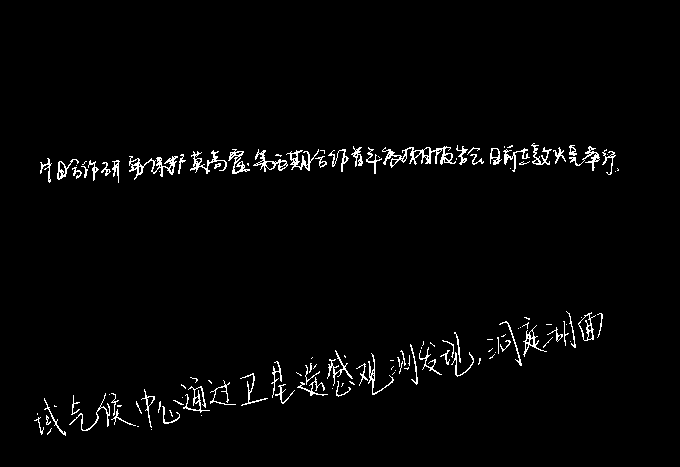 中日合作研究保护莫高窟第五期合作首年度项目报告会日前在敦煌举行.
域气候中心通过卫星遥感观测发现,洞庭湖面